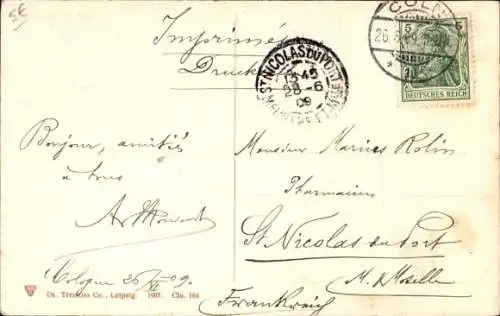 5€
Imprimés
Drucks
CÖLN
26.6.
5 5
DEUTSCHES REICH
ST NICOLAS DU PORT
15 45
28-6
09
MEURTHE ET M
Bonjour, amitiés
à tous
Cologne 26/VI 09.
Monsieur Marius Rolin
Pharmacien
St. Nicolas du Port
M. & Moselle
Frankreich
Dr. Trenkler Co., Leipzig. 1907. Cln. 104